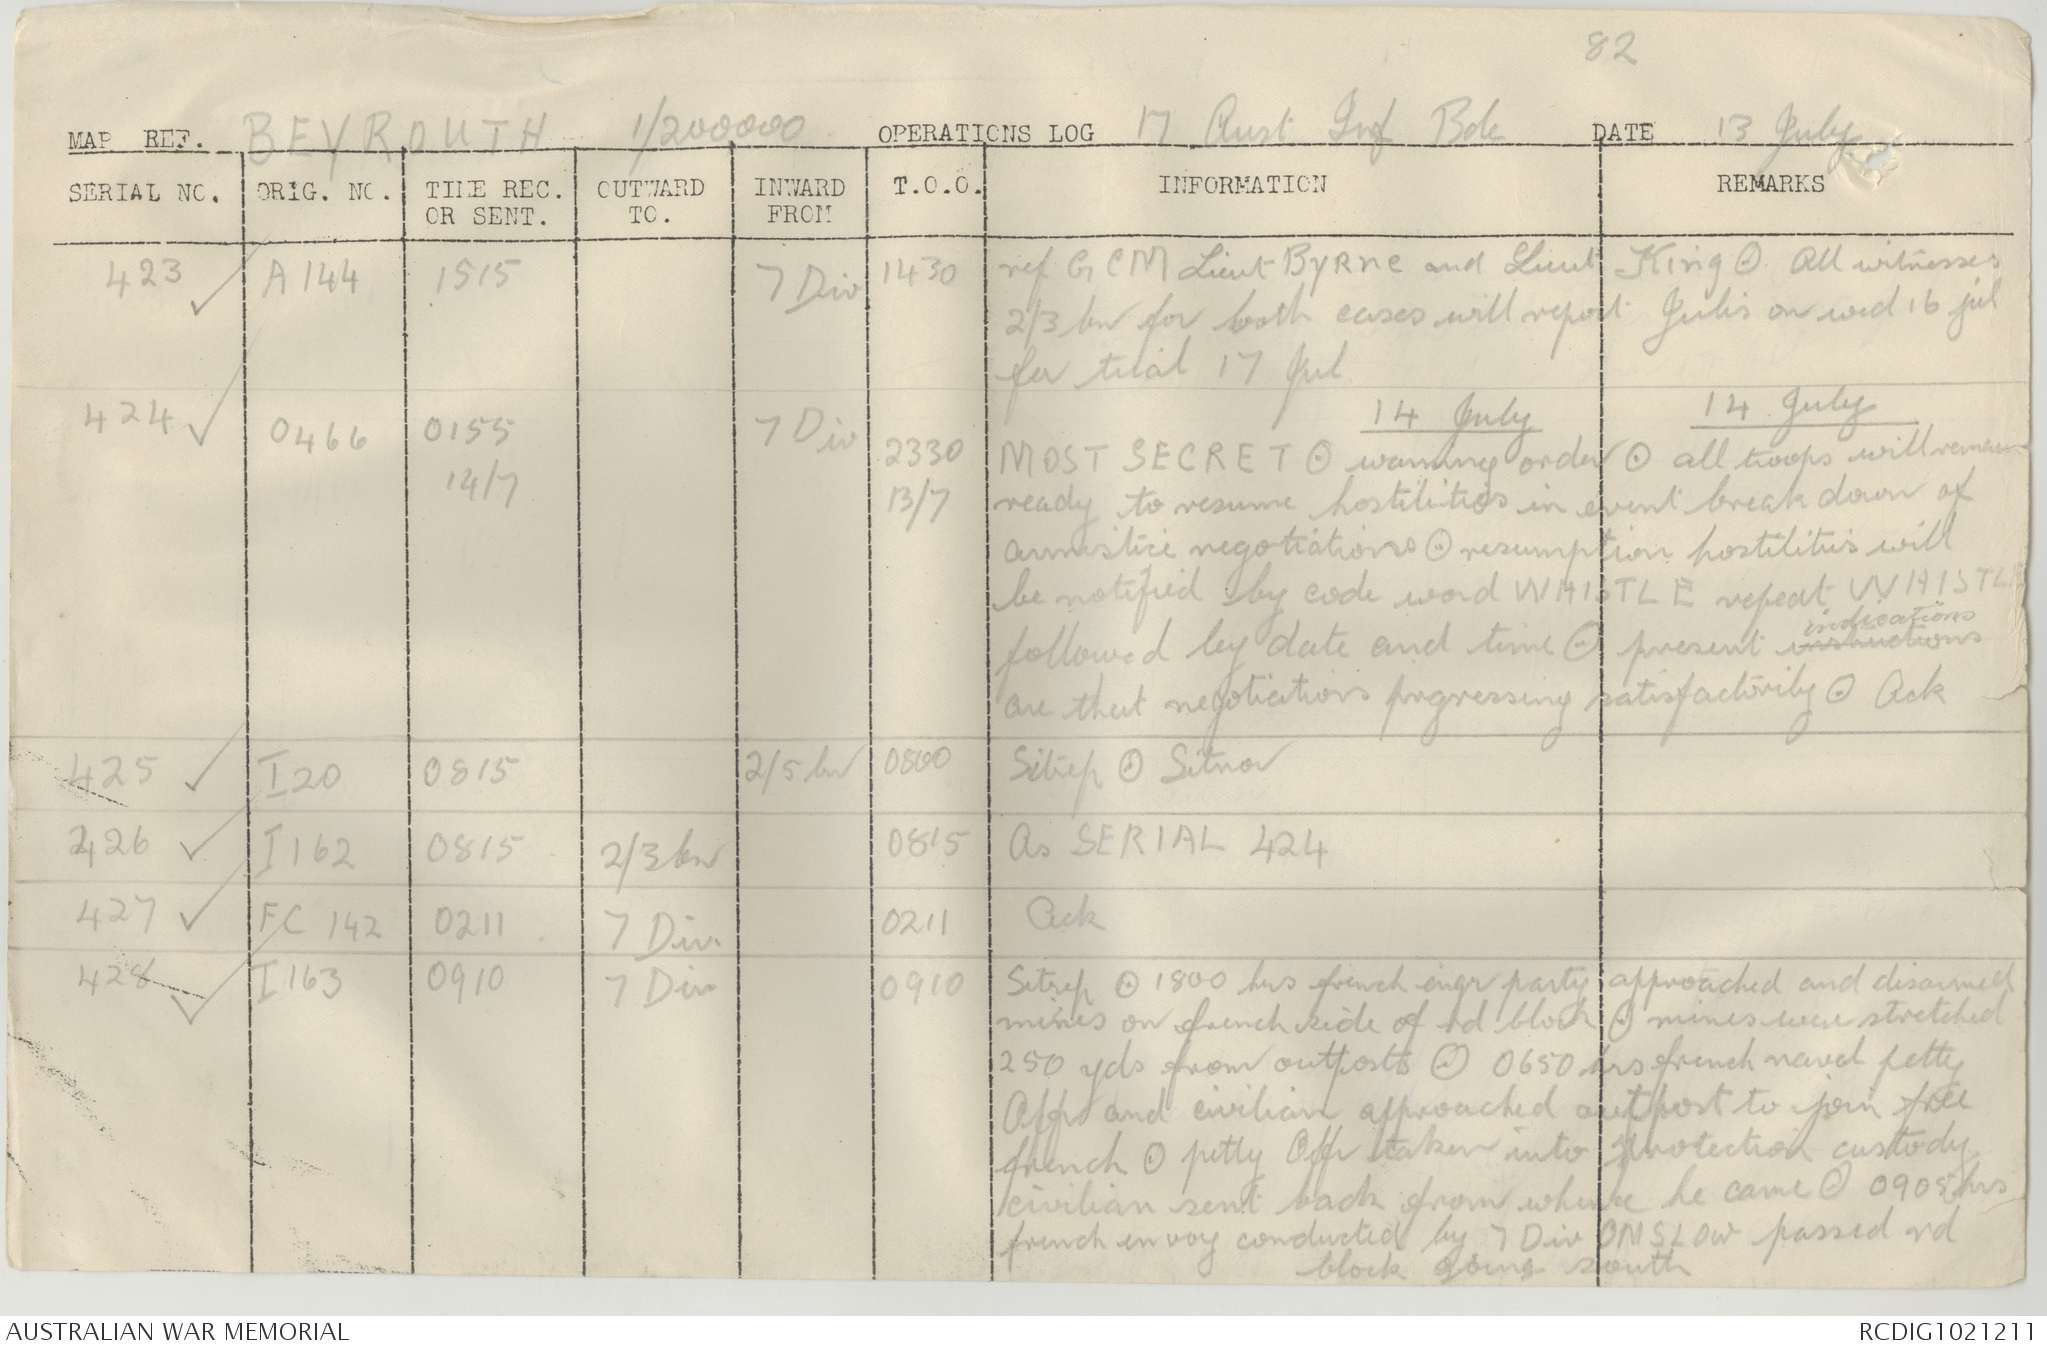 82
MAP REF. BEYROUTH 1/200000 OPERATIONS LOG 17 Aust Inf Bde DATE 13 July
SERIAL NO. ORIG. NO. TIME REC. OR SENT. OUTWARD TO. INWARD FROM T.O.O. INFORMATION REMARKS
423 ✓ A144 1515 7 Div 1430 ref GCM Lieut Byrne and Lieut King ⊙ All witnesses
2/3 bn for both cases will report Julis on wed 16 jul
for trial 17 Jul
14 July 14 July
424 ✓ O466 0155 14/7 7 Div 2330 13/7 MOST SECRET ⊙ warning order ⊙ all troops will remain
ready to resume hostilities in event break down of
armistice negotiations ⊙ resumption hostilities will
be notified by code word WHISTLE repeat WHISTLE
followed by date and time ⊙ present indications
are that negotiations prgressing satisfactority ⊙ Ack
425 ✓ I20 0815 2/5 bn 0800 Sitrep ⊙ Sitnor
426 ✓ I162 0815 2/3 bn 0815 As SERIAL 424
427 ✓ FC 142 0211 7 Div. 0211 Ack
428 ✓ I163 0910 7 Div 0910 Sitrep ⊙ 1800 hrs french engr party approached and disarmed
mines on french side of rd block ⊙ mines were stretched
250 yds from outposts ⊙ 0650 hrs french naval petty
Offr and civilian approached outpost to join free
french ⊙ petty Offr taken into protection custody
civilian sent back from whence he came ⊙ 0905 hrs
french envoy conducted by 7 Div ONSLOW passed rd
block going south
AUSTRALIAN WAR MEMORIAL RCDIG1021211